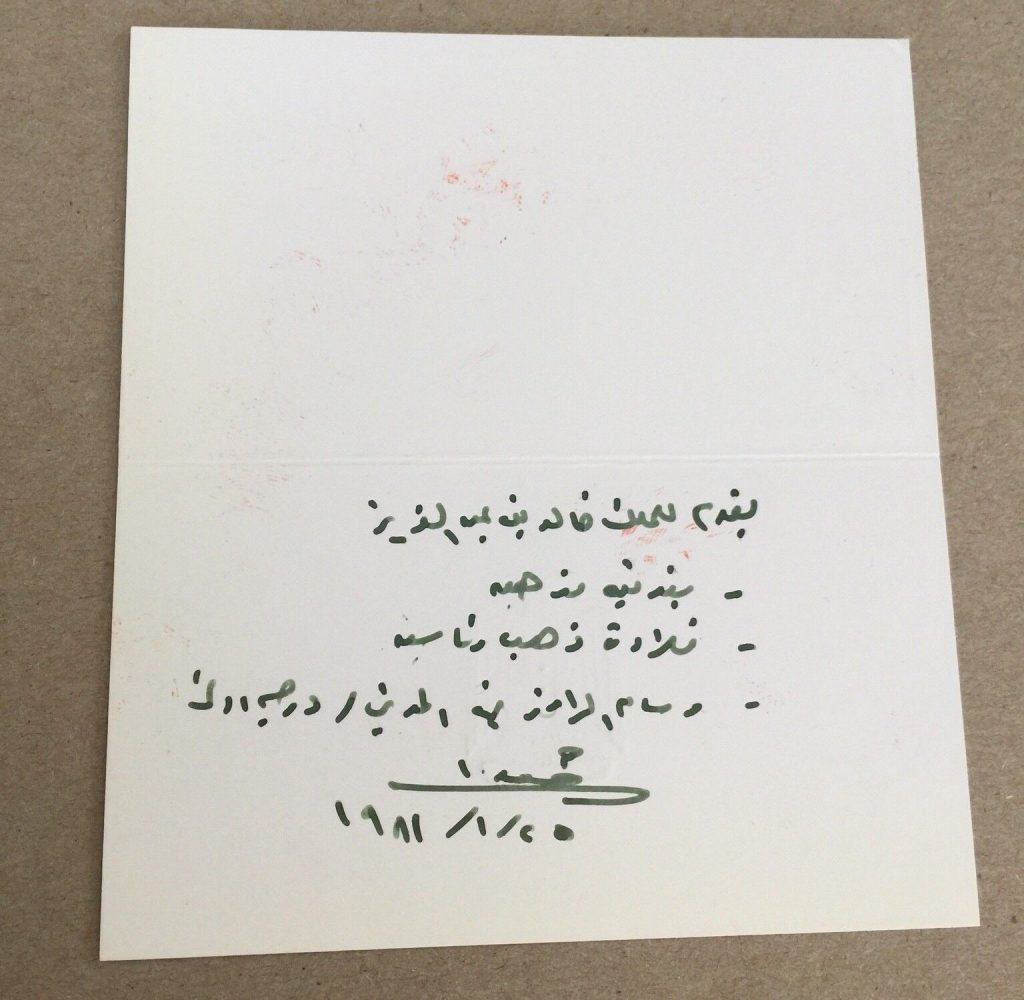 يقدم للملك خالد بن عبد العزيز
- بندقية مذهبه
- قلادة ذهب رئاسيه
- وسام الرافدين المدني / درجه اولى
١٩٨١/١/٢٥